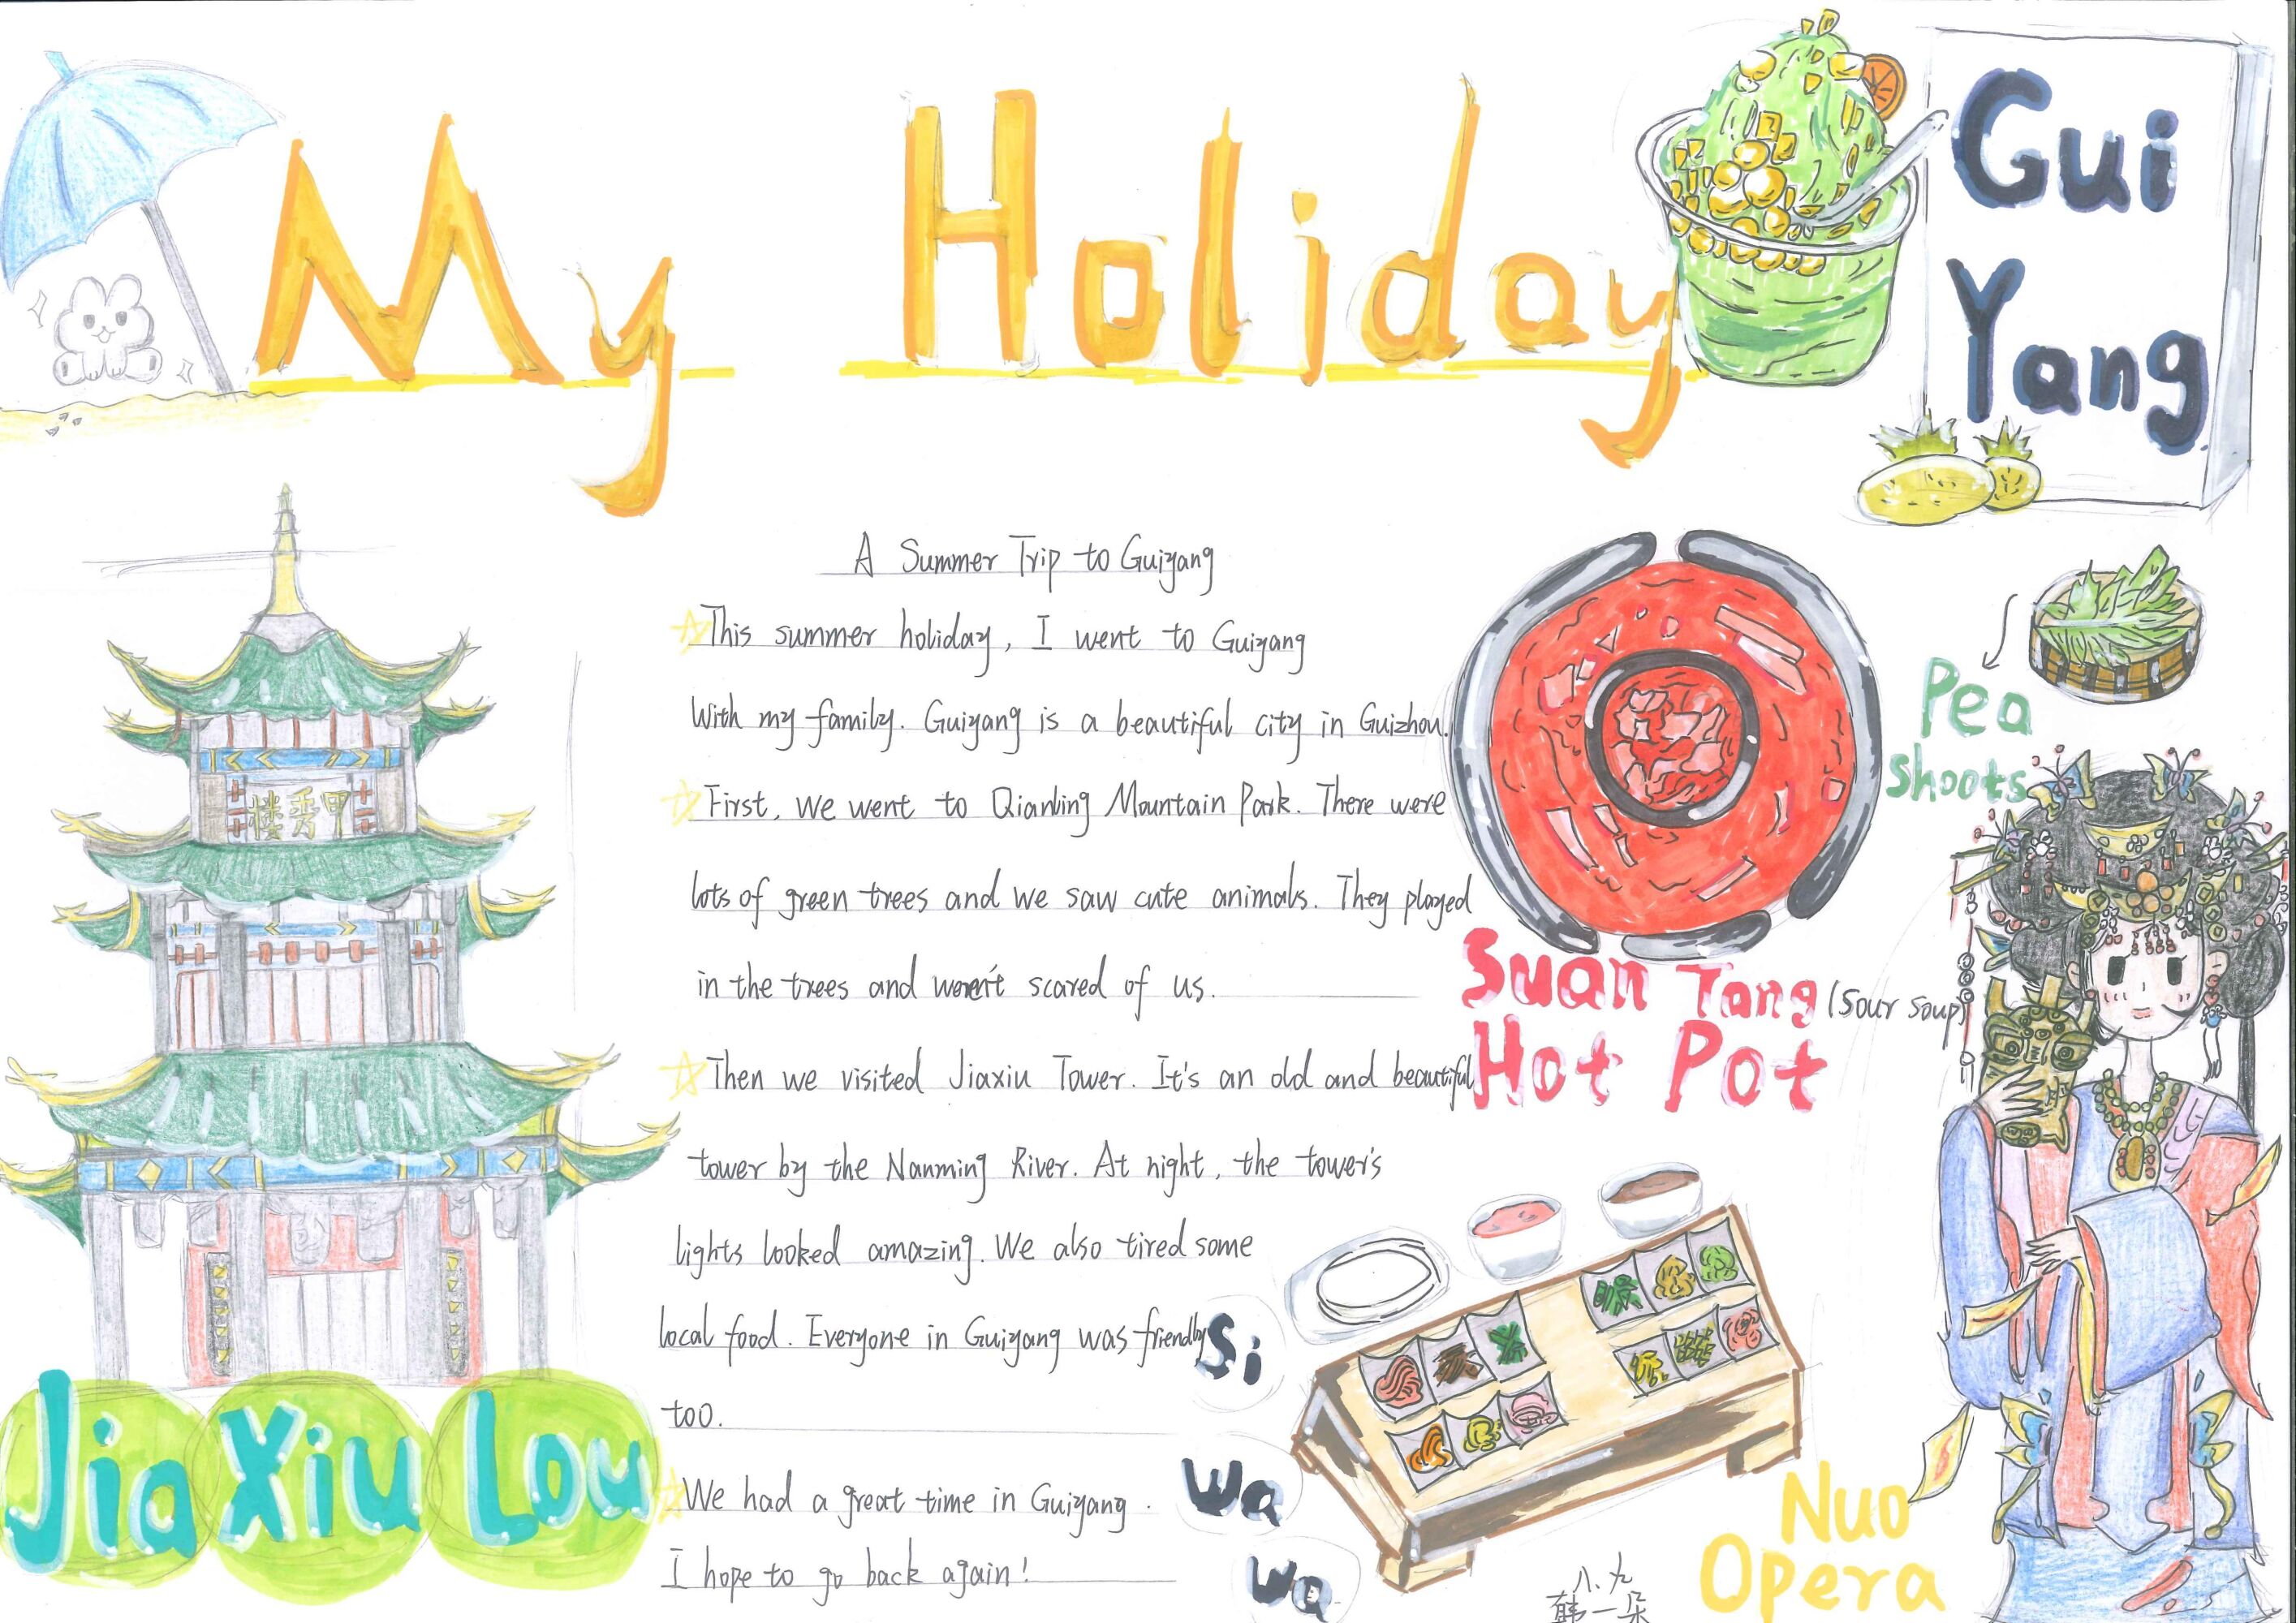 My Holiday
Gui
Yang
A Summer Trip to Guiyang
This summer holiday, I went to Guiyang
With my family. Guiyang is a beautiful city in Guizhou.
First, we went to Qianling Mountain Park. There were
lots of green trees and we saw cute animals. They played
in the trees and weren't scared of us.
Then we visited Jiaxiu Tower. It's an old and beautiful
tower by the Nanming River. At night, the tower's
lights looked amazing. We also tired some
local food. Everyone in Guiyang was friendly
too.
We had a great time in Guiyang.
I hope to go back again!
楼秀甲
Jia Xiu Lou
Pea
shoots
Suan Tang (Sour Soup)
Hot Pot
Si
Wa
Wa
Nuo
Opera
八.九
韩一朵